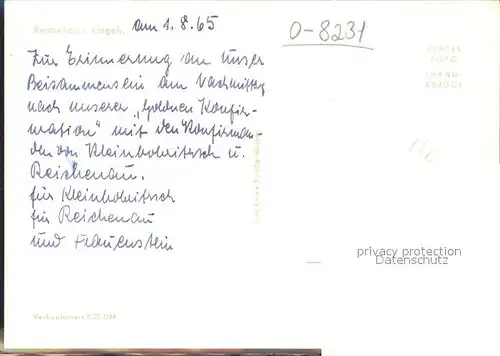 am 1.8.65
0-8231
Zur Erinnerung an unser
Beisammensein am Nachmittag
nach unserer „Goldenen Konfir-
mation" mit den Konfirman-
den von Kleinbobritzsch u.
Reichenau.
für Kleinbobritzsch
für Reichenau
und Frauenstein
ECHTES
FOTO
(HAND-
ABZUG)
privacy protection
Datenschutz
Verkaufspreis 0,25 DM